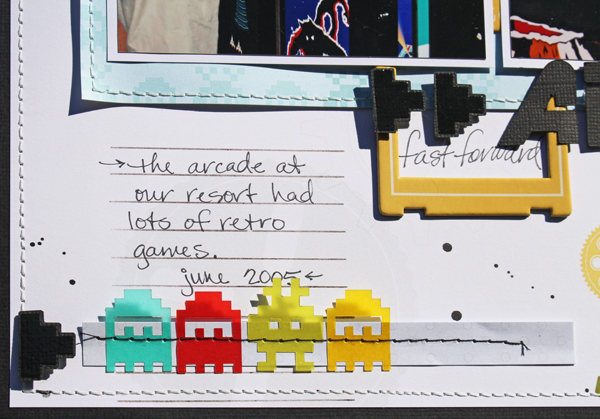 the arcade at
our resort had
lots of retro
games.
june 2005
fast forward